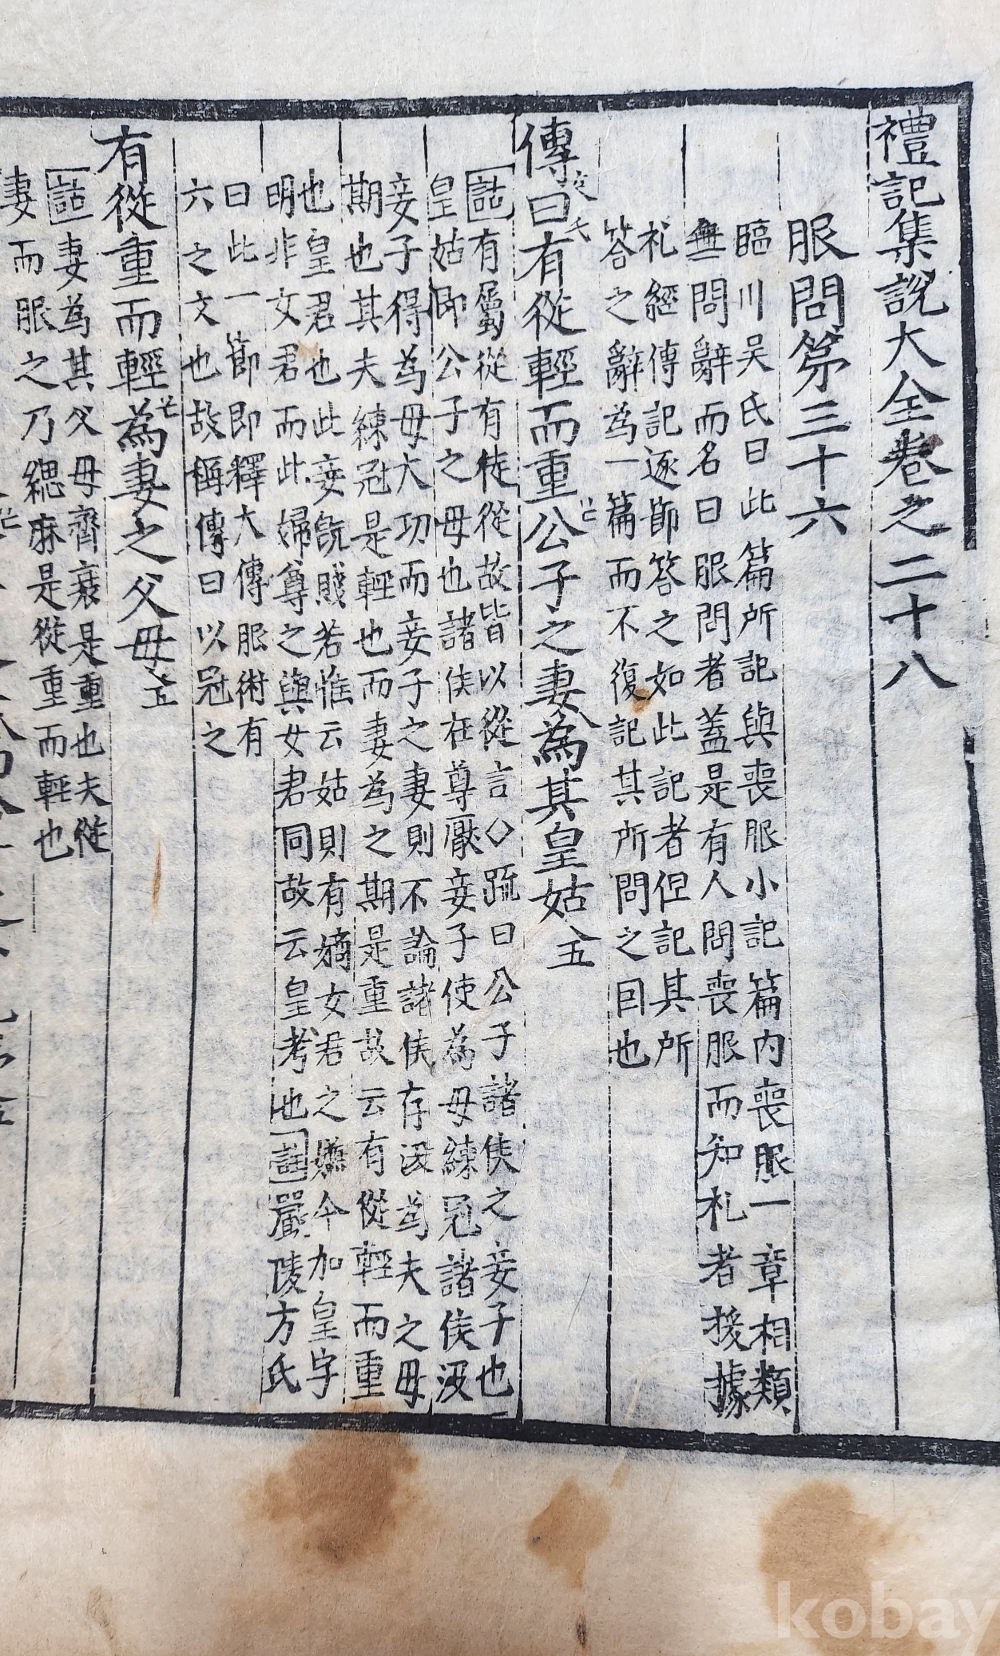 禮記集說大全卷之二十八
服問第三十六
臨川吳氏曰此篇所記與喪服小記篇內喪服一章相類
無問辭而名曰服問者蓋是有人問喪服而知礼者援據
礼經傳記逐節答之如此記者但記其所
答之辭為一篇而不復記其所問之目也
傳曰有從輕而重公子之妻為其皇姑
詰有屬從有徒從故皆以從言○疏曰公子諸侯之妾子也
皇姑即公子之母也諸侯在尊厭妾子使為母練冠諸侯沒
妾子得為母大功而妾子之妻則不論諸侯存沒為夫之母
期也其夫練冠是輕也而妻為之期是重故云有從輕而重
也皇君也此妾旣賤若惟云姑則有嫡女君之嫌今加皇字
明非女君而此婦尊之與女君同故云皇考也註嚴陵方氏
曰此一節即釋大傳服術有
六之文也故稱傳曰以冠之
有從重而輕為妻之父母
詰妻為其父母齊衰是重也夫從
妻而服之乃緦麻是從重而輕也
kobay